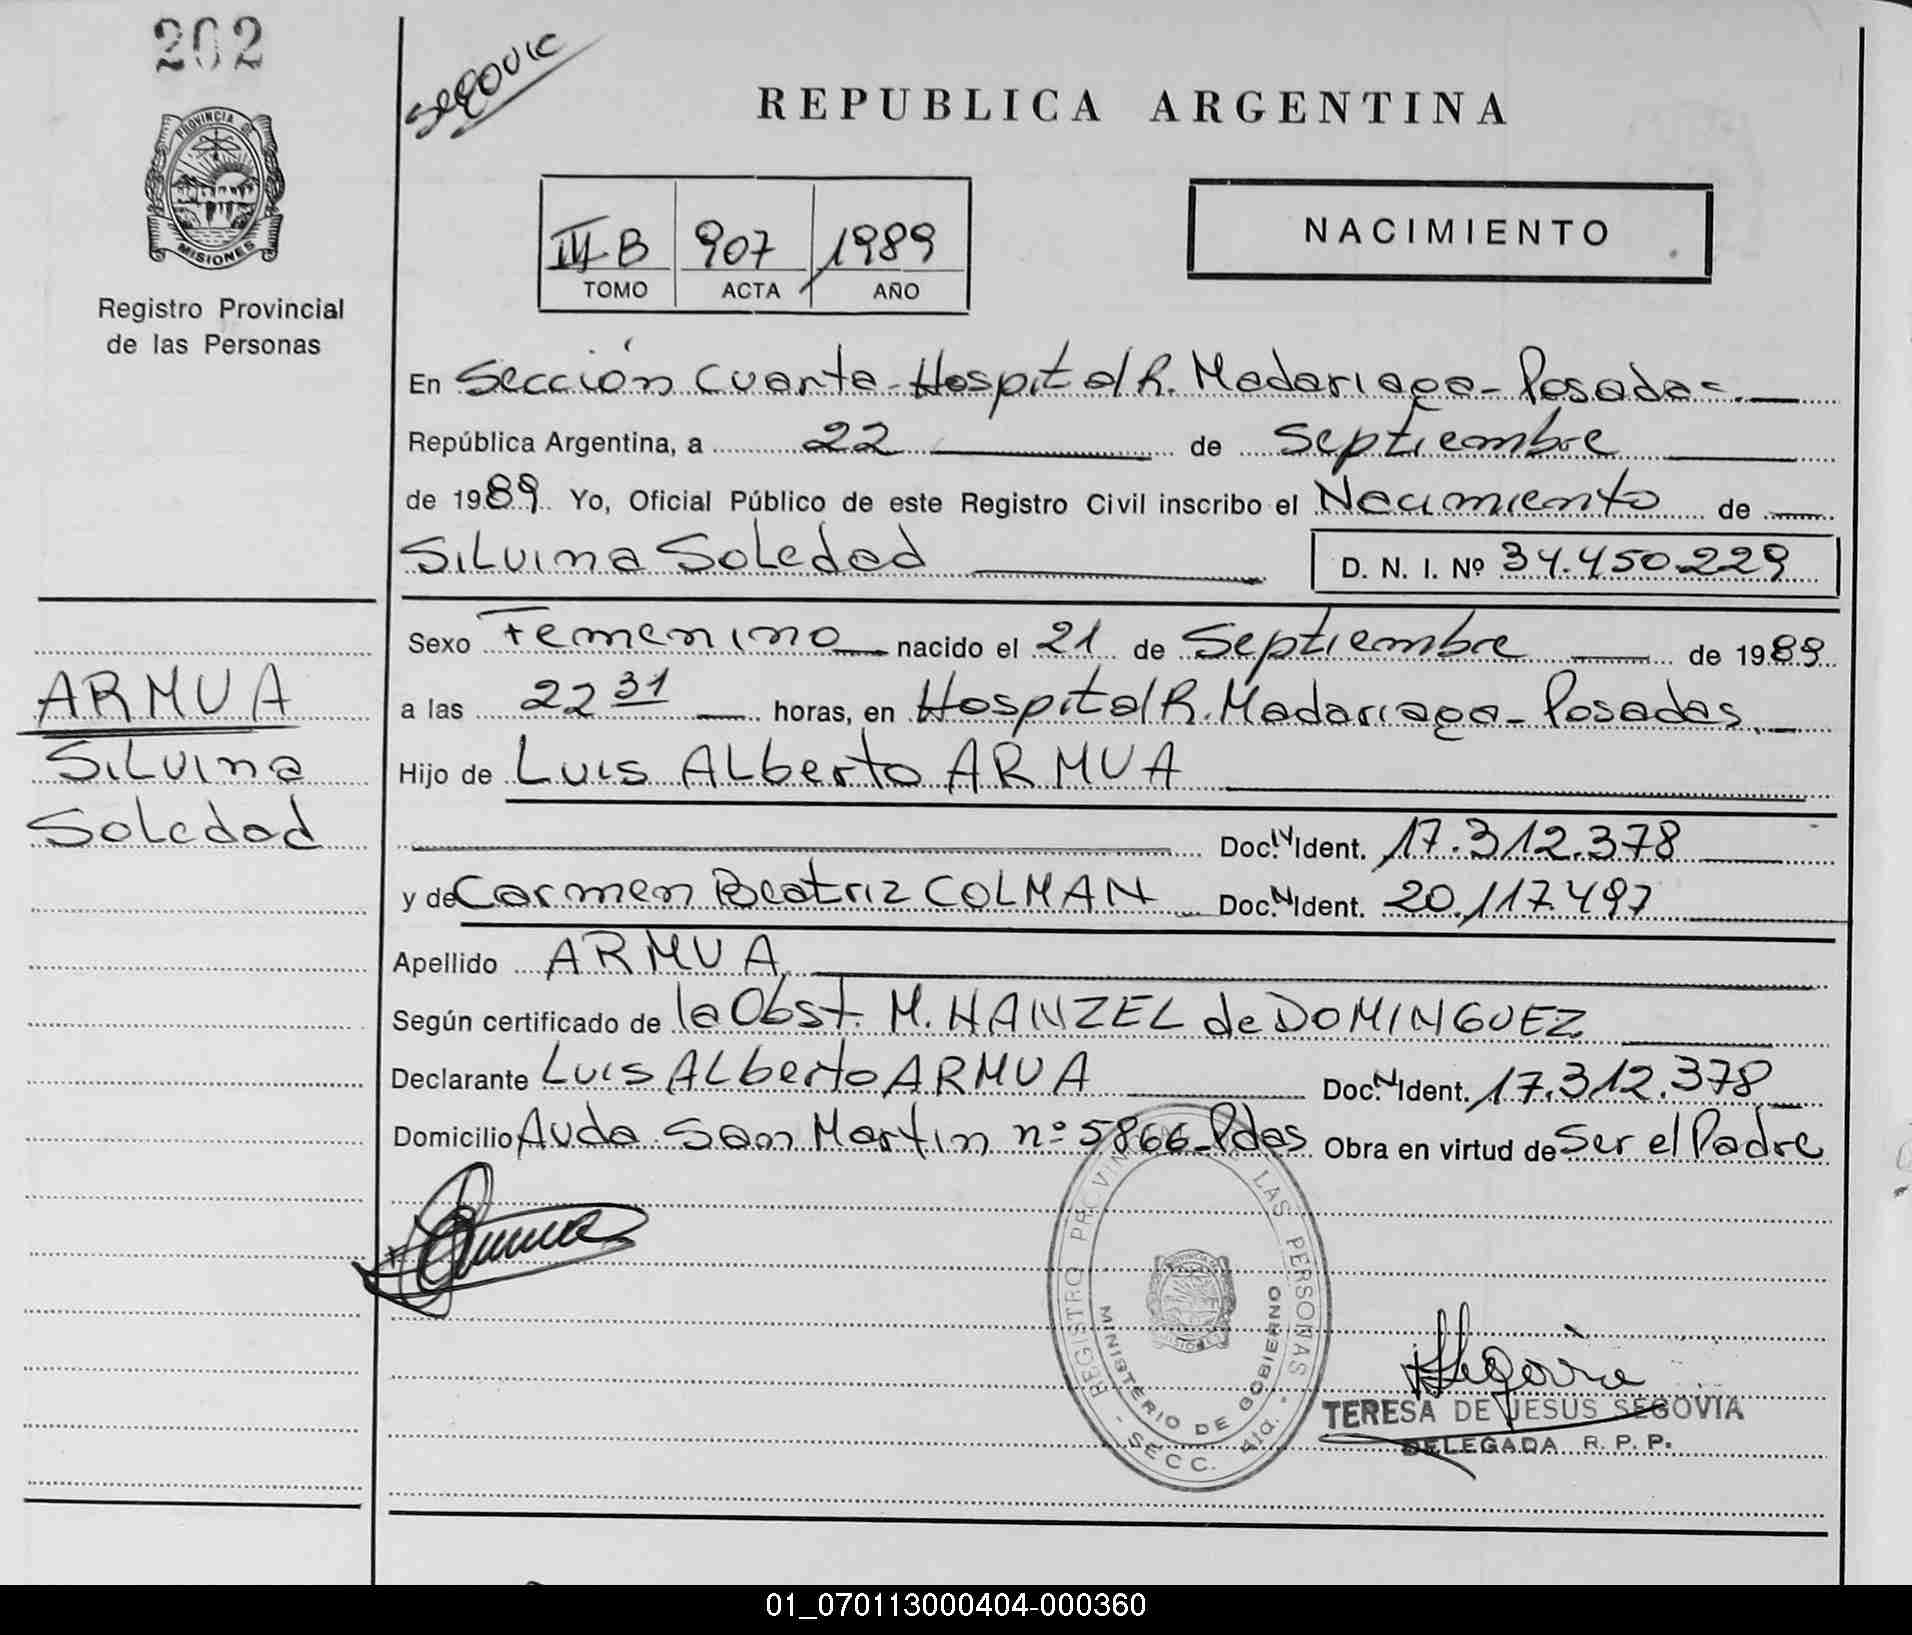 202
Segovia
PROVINCIA DE
MISIONES
Registro Provincial
de las Personas
REPUBLICA ARGENTINA
III B 907 1989
TOMO ACTA AÑO
NACIMIENTO
En Sección Cuarta-Hospital R. Madariaga-Posadas.
República Argentina, a 22 de Septiembre
de 1989. Yo, Oficial Público de este Registro Civil inscribo el Nacimiento de
Silvina Soledad D. N. I. Nº 34.450.229
Sexo Femenino nacido el 21 de Septiembre de 1989
a las 22 31 horas, en Hospital R. Madariaga-Posadas.
Hijo de Luis Alberto ARMUA
Doc. N Ident. 17.312.378
y de Carmen Beatriz COLMAN Doc. N Ident. 20.117.497
Apellido ARMUA
Según certificado de la Obst. M. HANZEL de DOMINGUEZ
Declarante Luis Alberto ARMUA Doc. N Ident. 17.312.378
Domicilio Avda San Martin nº 5866-Pdas Obra en virtud de Ser el Padre
ARMUA
Silvina
Soledad
REGISTRO PROVINCIAL LAS PERSONAS
MINISTERIO DE GOBIERNO
SECC. 4ta.
Segovia
TERESA DE JESUS SEGOVIA
DELEGADA R. P. P.
01_070113000404-000360